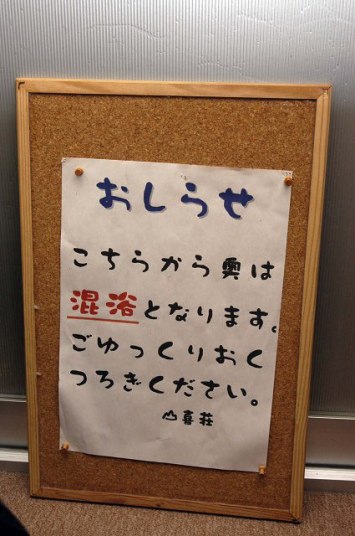 おしらせ
こちらから奥は
混浴となります。
ごゆっくりおく
つろぎください。
山喜荘